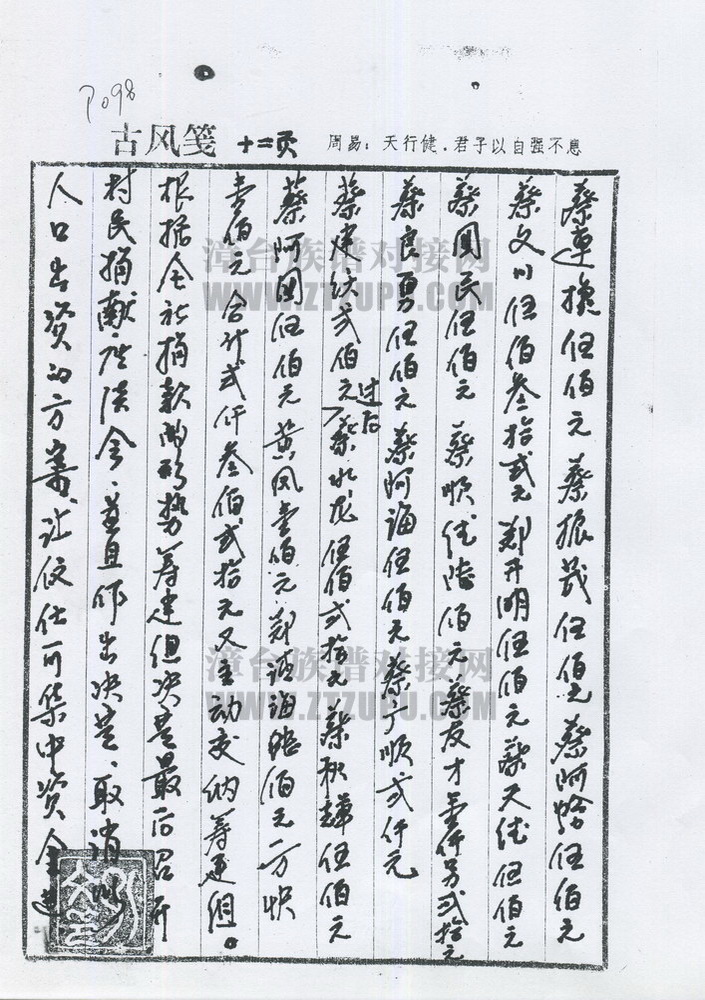 P098
古风笺 十二页 周易：天行健．君子以自强不息
蔡连 伍佰元 蔡振茂伍佰元 蔡阿 伍佰元
蔡文川伍佰叁拾贰元 郑开明伍佰元 蔡天 伍佰元
蔡国民伍佰元 蔡顺 陆佰元、蔡友才壹仟另贰拾元
蔡良勇伍佰元 蔡阿海伍佰元 蔡丁顺贰仟元
蔡建 贰佰元 过后 蔡水龙伍佰贰拾元 蔡秋 伍佰元
蔡阿国伍佰元 黄凤壹佰元 郑 海 佰元 方
壹佰元 合计贰仟叁佰贰拾元又主动交纳筹建组。
根据全社捐款的形势筹建组决定最后召开
村民捐献座谈会、并且作出决定、取消
人口出资的方案、让 集中资金建
漳台族谱对接网
WWW.ZTZUPU.COM
漳台族谱对接网
WWW.ZTZUPU.COM